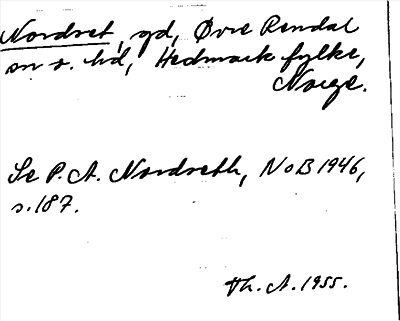 Nordret, gd, Øvre Rendal
sn o. hd, Hedmark fylke,
Norge.
Se P. A. Nordreth, NoB 1946,
s. 187.
Th. A. 1955.